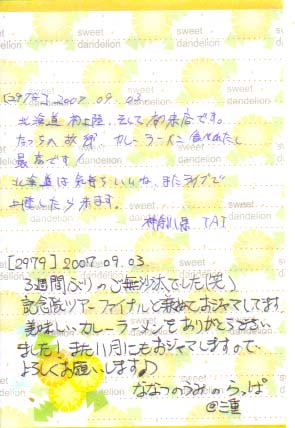 sweet dandelion
[2978] 2007.09.03
北海道初上陸、そして初来店です。
たっちの故郷 カレーラーメン食せたし
最高です！
北海道は気持ちいいね、またライブで
上陸したら来ます。
神奈川県 TAI
[2979] 2007.09.03
3週間ぶりのご無沙汰でした(笑)
記念版ツアーファイナルと兼ねておジャマしてます
美味しいカレーラーメンをありがとうござい
ました！また11月にもおジャマしますので
よろしくお願いします♪
ななつのうみのらっぱ
@三重